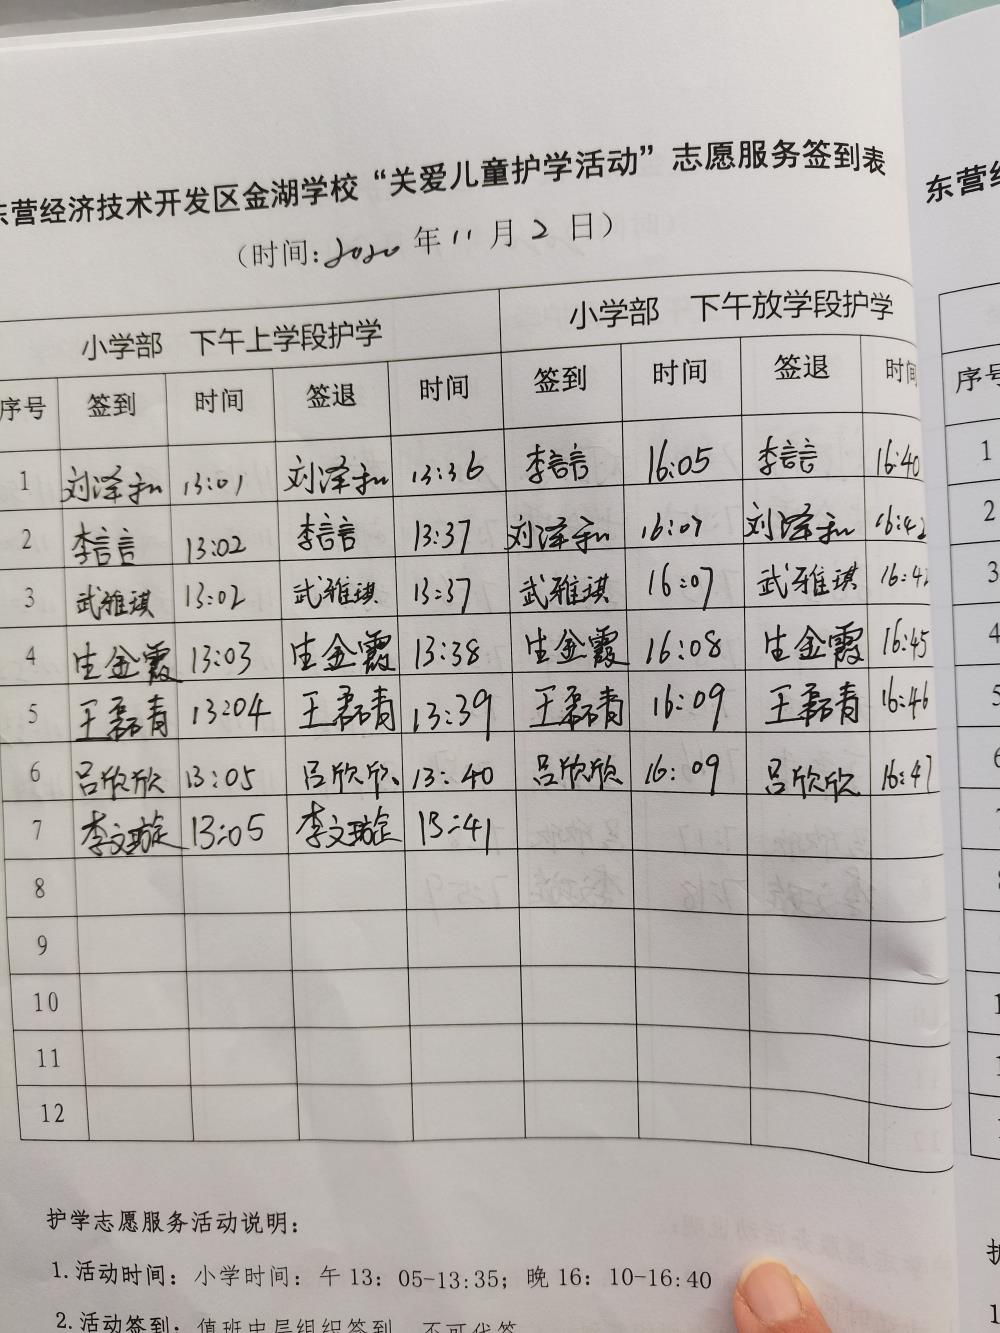 东营经济技术开发区金湖学校“关爱儿童护学活动”志愿服务签到表
（时间：2020年11月2日）
小学部 下午上学段护学 小学部 下午放学段护学
序号 签到 时间 签退 时间 签到 时间 签退 时间
1 刘泽和 13:01 刘泽和 13:36 李言言 16:05 李言言 16:40
2 李言言 13:02 李言言 13:37 刘泽和 16:07 刘泽和 16:42
3 武雅琪 13:02 武雅琪 13:37 武雅琪 16:07 武雅琪 16:42
4 生金霞 13:03 生金霞 13:38 生金霞 16:08 生金霞 16:45
5 王磊青 13:04 王磊青 13:39 王磊青 16:09 王磊青 16:46
6 吕欣欣 13:05 吕欣欣 13:40 吕欣欣 16:09 吕欣欣 16:47
7 李文璇 13:05 李文璇 13:41
8
9
10
11
12
护学志愿服务活动说明：
1.活动时间：小学时间：午13：05-13:35；晚16：10-16:40
2.活动签到：值班中层组织签到，不可代签
东营经
序号
1
2
3
4
5
6
护
1